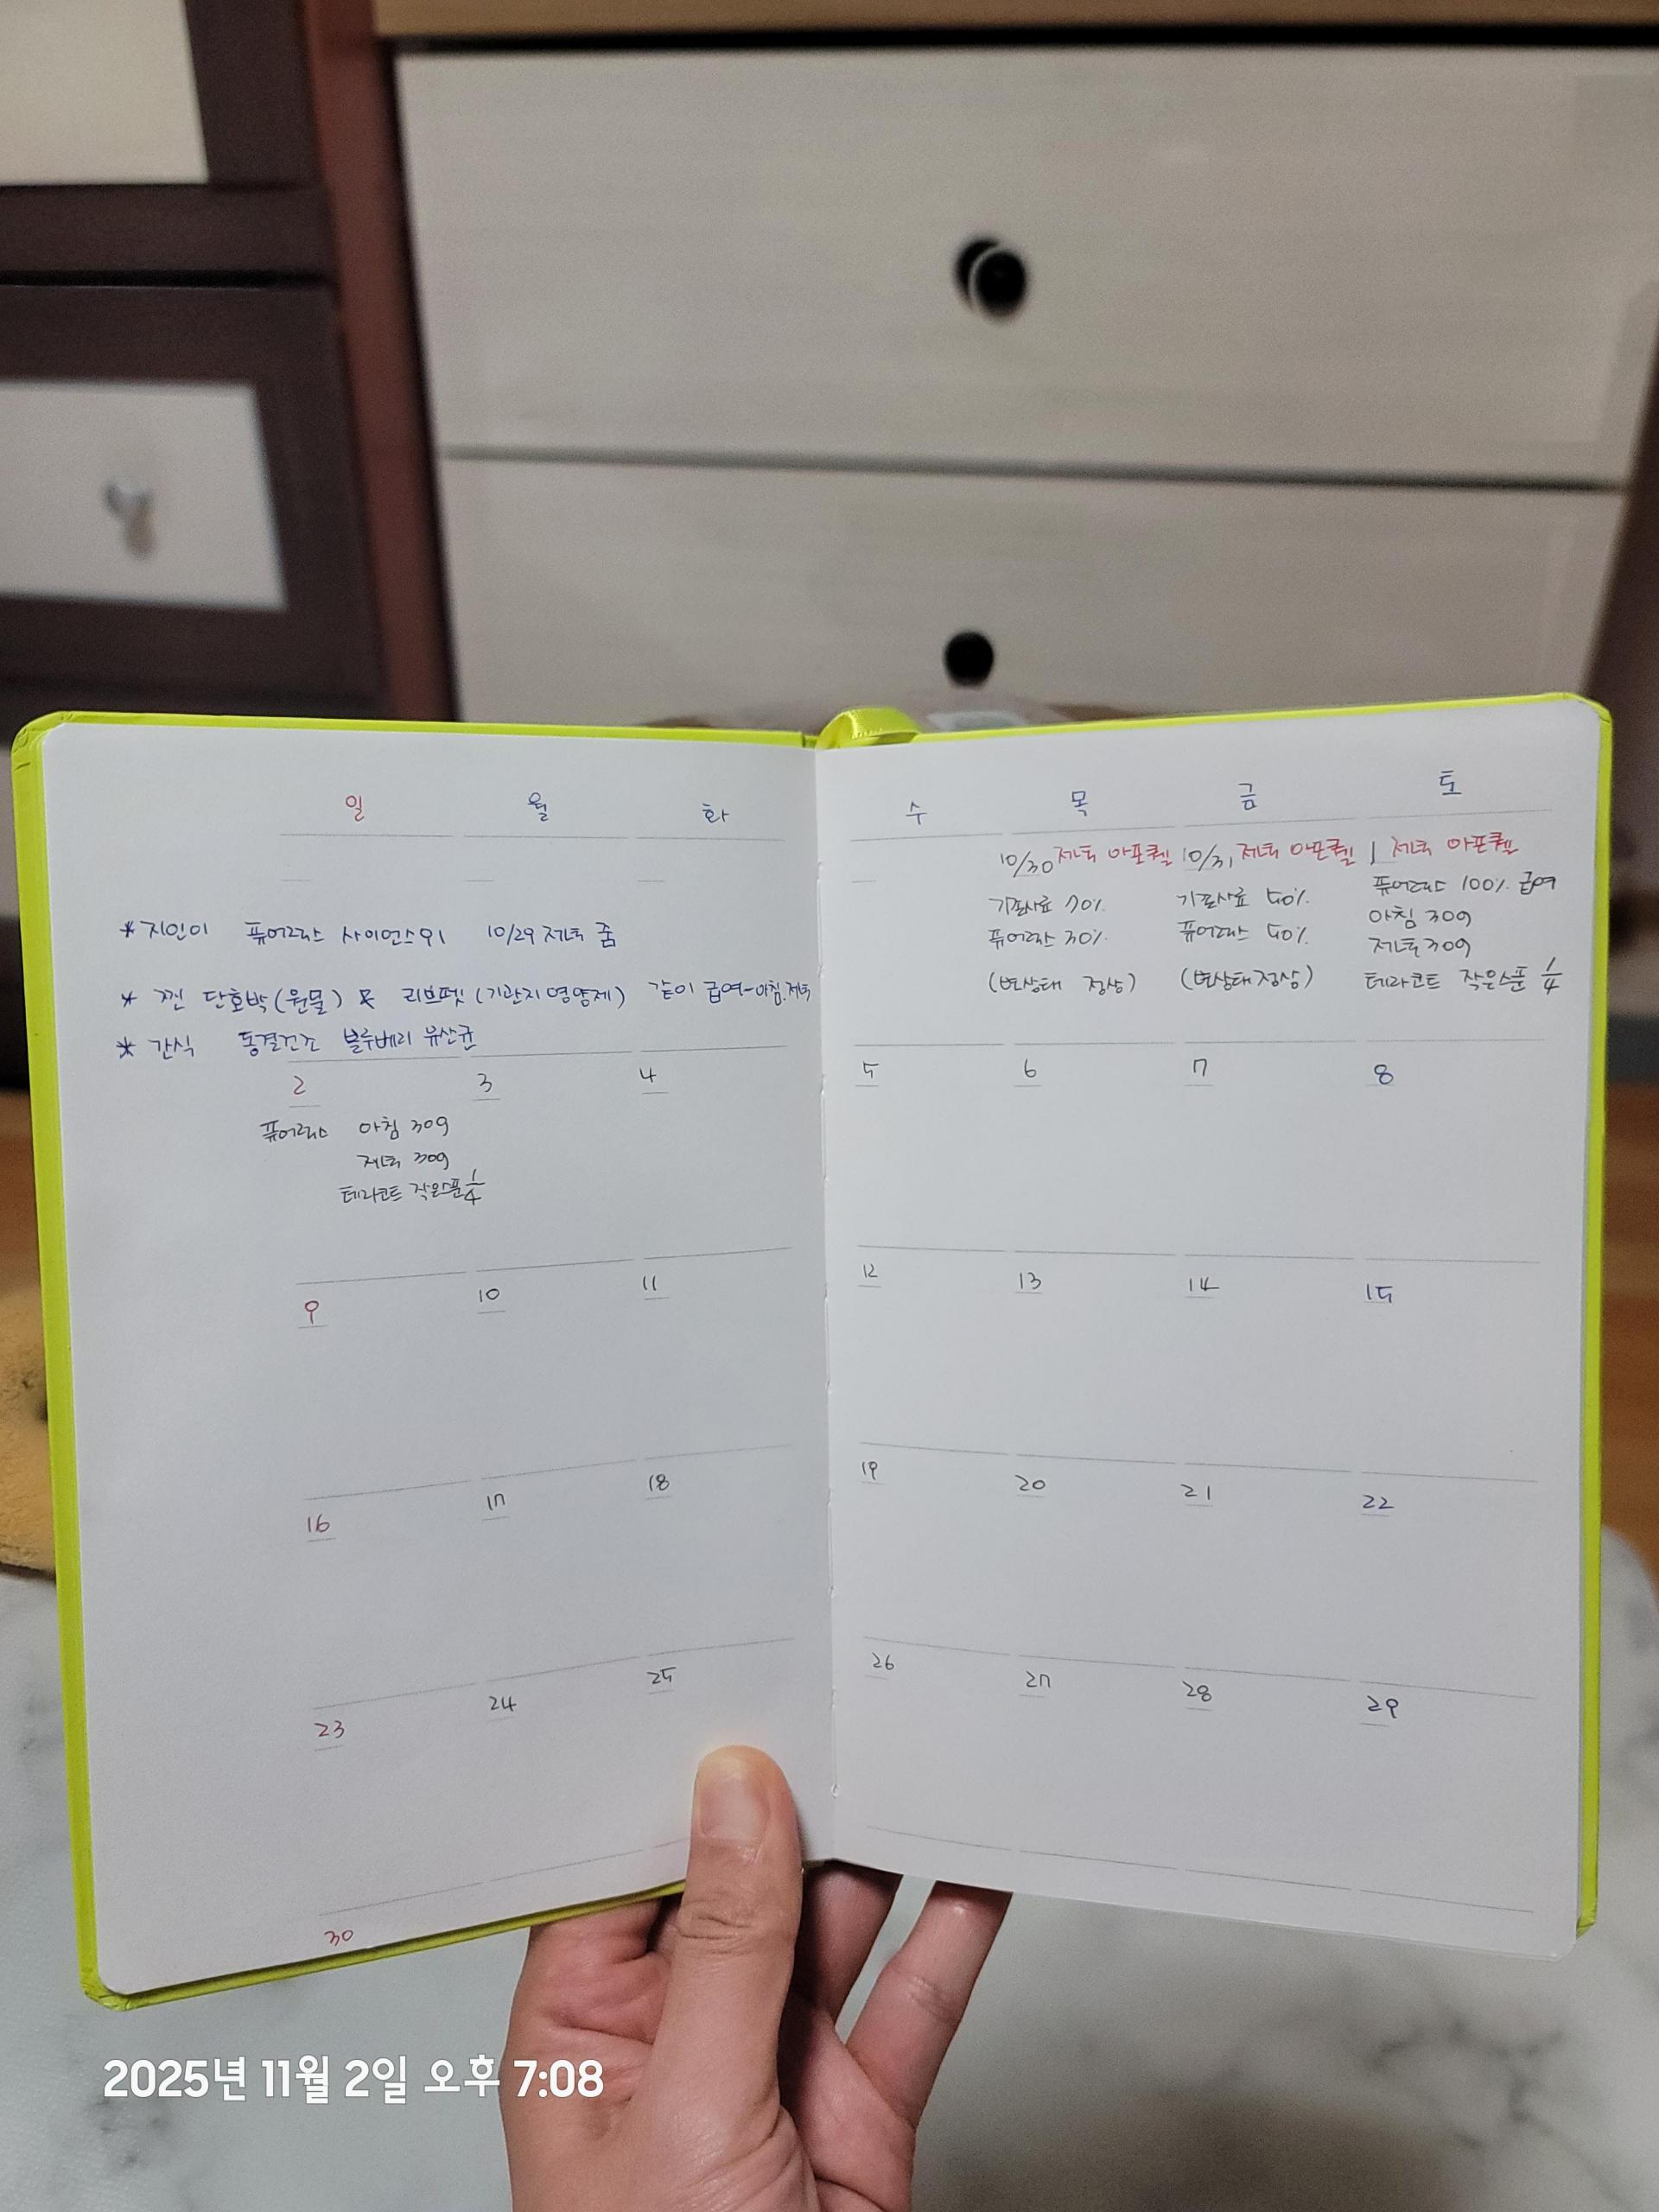 일 월 화 수 목 금 토
10/30 저녁 아포퀠
기존사료 70%
퓨어럭스 30%
(변상태 정상)
10/31 저녁 아포퀠
기존사료 50%
퓨어럭스 50%
(변상태 정상)
1 저녁 아포퀠
퓨어럭스 100% 급여
아침 30g
저녁 30g
테라코트 작은스푼 1/4
* 지인이 퓨어럭스 사이언스위 10/29 저녁 줌
* 찐 단호박(원물) 및 리브펫(기관지영양제) 같이 급여-아침.저녁
* 간식 동결건조 블루베리 유산균
2 3 4 5 6 7 8
퓨어럭스 아침 30g
저녁 30g
테라코트 작은스푼 1/4
9 10 11 12 13 14 15
16 17 18 19 20 21 22
23 24 25 26 27 28 29
30
2025년 11월 2일 오후 7:08